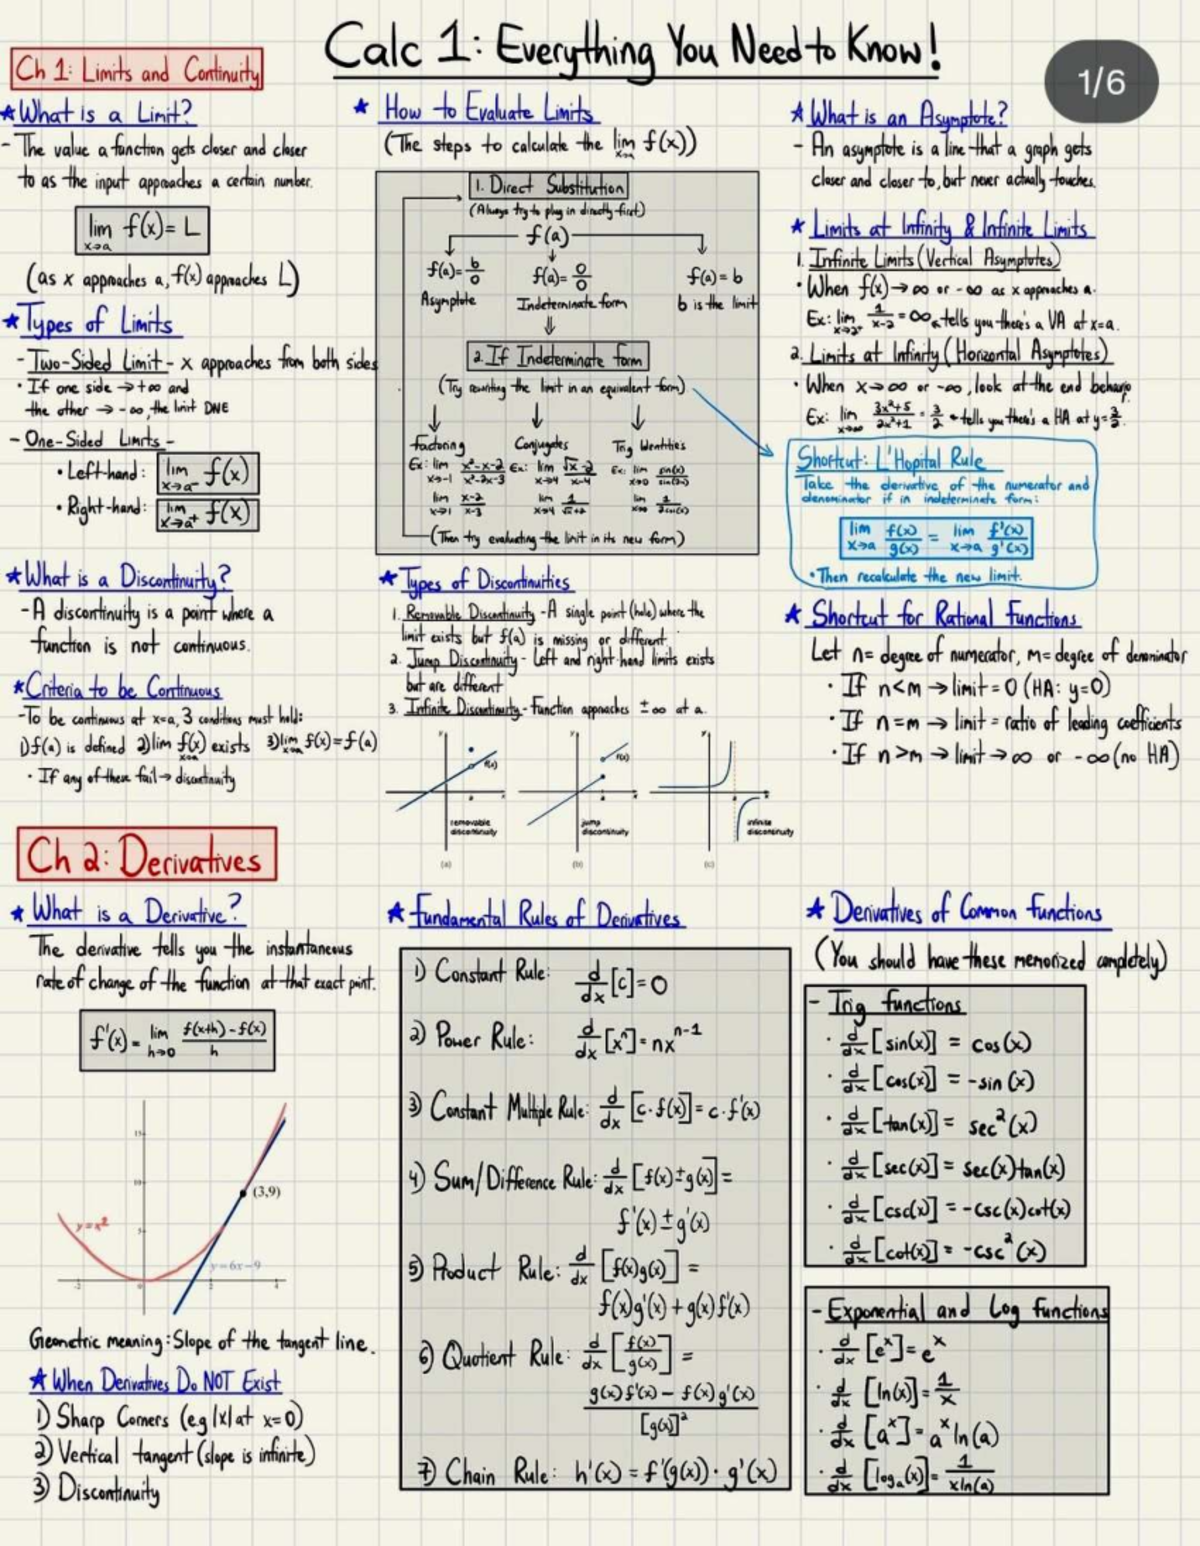 Calc 1: Everything You Need to Know!
1/6
Ch 1: Limits and Continuity
★ What is a Limit?
- The value a function gets closer and closer
to as the input approaches a certain number.
lim x→a f(x) = L
(as x approaches a, f(x) approaches L)
★ Types of Limits
- Two-Sided Limit - x approaches from both sides
• If one side → +∞ and
the other → -∞, the limit DNE
- One-Sided Limits -
• Left-hand: lim x→a⁻ f(x)
• Right-hand: lim x→a⁺ f(x)
★ What is a Discontinuity?
- A discontinuity is a point where a
function is not continuous.
★ Criteria to be Continuous
- To be continuous at x=a, 3 conditions must hold:
1) f(a) is defined 2) lim x→a f(x) exists 3) lim x→a f(x) = f(a)
• If any of these fail → discontinuity
★ How to Evaluate Limits
(The steps to calculate the lim x→a f(x))
1. Direct Substitution
(Always try to plug in directly first)
f(a)
f(a) = b/0
f(a) = 0/0
f(a) = b
Asymptote
Indeterminate form
b is the limit
2. If Indeterminate form
(Try rewriting the limit in an equivalent form)
factoring
Conjugates
Trig Identities
Ex: lim x→-1 x²-x-2 / x²-2x-3
Ex: lim x→4 √x-2 / x-4
Ex: lim x→0 sin(x) / sin(2x)
lim x→1 x-2 / x-3
lim x→4 1 / √x+2
lim x→0 1 / 2cos(x)
(Then try evaluating the limit in its new form)
★ Types of Discontinuities
1. Removable Discontinuity - A single point (hole) where the
limit exists but f(a) is missing or different
2. Jump Discontinuity - Left and right hand limits exists
but are different
3. Infinite Discontinuity - Function approaches ±∞ at a.
y
x
f(x)
a
removable discontinuity
(a)
y
x
f(x)
a
jump discontinuity
(b)
y
x
infinite discontinuity
(c)
★ What is an Asymptote?
- An asymptote is a line that a graph gets
closer and closer to, but never actually touches.
★ Limits at Infinity & Infinite Limits
1. Infinite Limits (Vertical Asymptotes)
• When f(x) → ∞ or -∞ as x approaches a.
Ex: lim x→2⁺ 1/x-2 = ∞ ← tells you there's a VA at x=a.
2. Limits at Infinity (Horizontal Asymptotes)
• When x→∞ or -∞, look at the end behavior
Ex: lim x→∞ 3x²+5 / 2x²+1 = 3/2 ← tells you there's a HA at y=3/2.
Shortcut: L'Hopital Rule
Take the derivative of the numerator and
denominator if in indeterminate form:
lim x→a f(x)/g(x) = lim x→a f'(x)/g'(x)
• Then recalculate the new limit.
★ Shortcut for Rational Functions
Let n= degree of numerator, m= degree of denominator
• If n<m → limit = 0 (HA: y=0)
• If n=m → limit = ratio of leading coefficients
• If n>m → limit → ∞ or -∞ (no HA)
Ch 2: Derivatives
★ What is a Derivative?
The derivative tells you the instantaneous
rate of change of the function at that exact point.
f'(x) = lim h→0 f(x+h) - f(x) / h
15
10
5
(3,9)
y=x²
y=6x-9
-2
0
2
4
Geometric meaning: Slope of the tangent line.
★ When Derivatives Do NOT Exist
1) Sharp Corners (e.g |x| at x=0)
2) Vertical tangent (slope is infinite)
3) Discontinuity
★ Fundamental Rules of Derivatives
1) Constant Rule: d/dx [c] = 0
2) Power Rule: d/dx [xⁿ] = nxⁿ⁻¹
3) Constant Multiple Rule: d/dx [c·f(x)] = c·f'(x)
4) Sum/Difference Rule: d/dx [f(x)±g(x)] =
f'(x) ± g'(x)
5) Product Rule: d/dx [f(x)g(x)] =
f(x)g'(x) + g(x)f'(x)
6) Quotient Rule: d/dx [f(x)/g(x)] =
g(x)f'(x) - f(x)g'(x) / [g(x)]²
7) Chain Rule: h'(x) = f'(g(x)) · g'(x)
★ Derivatives of Common Functions
(You should have these memorized completely)
- Trig functions
• d/dx [sin(x)] = cos(x)
• d/dx [cos(x)] = -sin(x)
• d/dx [tan(x)] = sec²(x)
• d/dx [sec(x)] = sec(x)tan(x)
• d/dx [csc(x)] = -csc(x)cot(x)
• d/dx [cot(x)] = -csc²(x)
- Exponential and Log Functions
• d/dx [eˣ] = eˣ
• d/dx [ln(x)] = 1/x
• d/dx [aˣ] = aˣ ln(a)
• d/dx [logₐ(x)] = 1/xln(a)